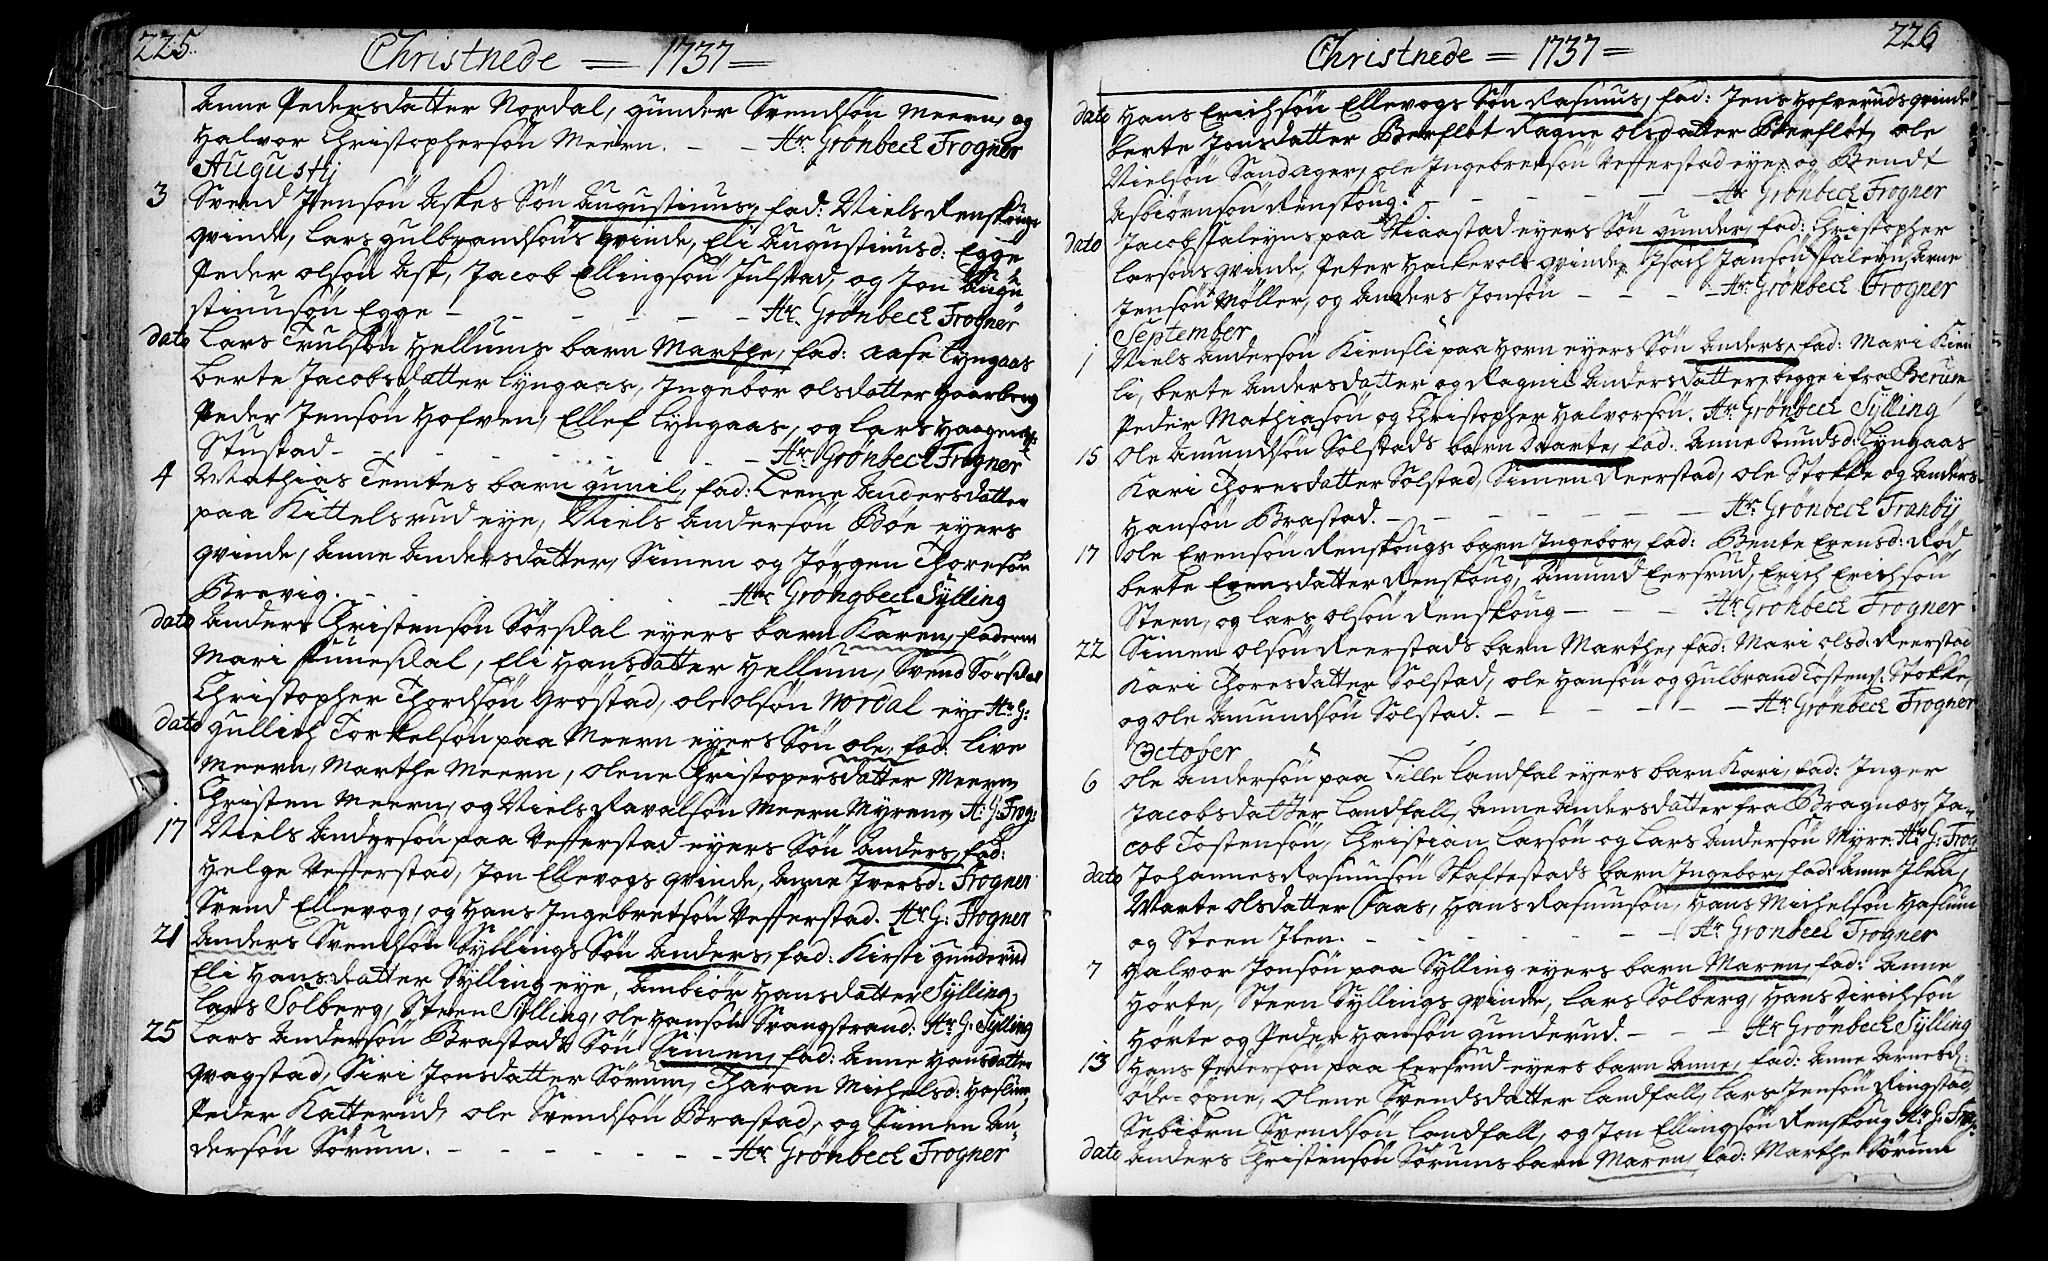 225.
Christnede = 1737 =
Anne Pedersdatter Nordal, gunder Svendsøn Meern, og
Halvor Christophersøn Meern. - - Hr. Grønbech Frogner
Augustij
3 Svend Jensøn Askes Søn Augustinus, fad: Niels Renskougs
qvinde, Lars gulbrandsøns qvinde, Eli Augustinusd: Egge
Peder olsøn Ask, Jacob Ellingsøn Julstad, og Jon Augu
stinusøn Egge - - - - - - Hr. Grønbech Frogner
dato Lars Trulsøn Hellums barn Marthe, fad: Aase Lyngaas
berte Jacobsdatter Lyngaas, Ingebor olsdatter Haarberg
Peder Jensøn Hofven, Ellef Lyngaas, og Lars Haagens:
Stustad - - - - - - - - Hr. Grønbech Frogner
4 Mathias Temtes barn gunil, fad: Leene Andersdatter
paa Kittelsrud eye, Niels Andersøn Bøe eyers
qvinde, Anne Andersdatter, Simen og Jørgen Thoresøn
Brevig. - - - - Hr. Grøngbech Sylling
dato Anders Christensøn Sørsdal eyers barn Karen, faderne
Mari Funesdal, Eli Hansdatter Hellum, Svend Sørsdal
Christopher Thordsøn Grøstad, ole olsøn Nordal eye Hr G:
dato gullich Torkelsøn paa Meern eyers Søn ole, fad: live
Meern, Marthe Meern, Olene Christopersdatter Meern,
Christen Meern, og Niels Ravalsøn Meern Myrene, H: G: Frog:
17 Niels Andersøn paa Vefferstad eyers Søn Anders, fad:
Helge Vefferstad, Jon Ellevogs qvinde, Anne Iversd: Frogner
Svend Ellevog, og Hans Ingebretsøn Vefferstad. Hr. G: Frogner
21 Anders Svendsøn Syllings Søn Anders, fad: Kirsti gunderud
Eli Hansdatter Sylling eye, Ambiør Hansdatter Sylling,
Lars Solberg, Steen Sylling, ole Hansøn Svangstrand: Hr G: Sylling
25 Lars Andersøn Brastads Søn Simen, fad: Anne Hansdatter
qvagstad, Siri Jonsdatter Sørum, Tharan Michelsd: Haslum,
Peder Katterud, ole Svendsøn Brastad, og Simen An-
dersøn Sørum. - - - - - - - Hr. Grønbech Frogner
226
Christnede = 1737 =
dato Hans Erichsøn Ellevogs Søn Rasmus, fad: Jens Hofveruds qvinde
berte Jonsdatter Berfløt Ragne olsdatter Berfløt, ole
Nielsøn Sandager, ole Ingebretsøn Vefferstad eye, og Bendt
Asbiørnsøn Renskoug. - - - - - Hr Grønbech Frogner
dato Jacob Staleyns paa Skiaastad eyers Søn gunder, fad: Christopher
Larsøns qvinde, Peter Hackerols qvinde, Isach Jansøn Staleyn, Arne
Jensøn Møller, og Anders Jonsøn - - - - Hr. Grønbech Frogner
September
1 Niels Andersøn Kiensli paa Horn eyers Søn Anders, fad: Mari Kien
li, berte Andersdatter og Ragnil Andersdatter, begge i fra Berum,
Peder Mathiasøn og Christopher Halvorsøn. Hr: Grønbech Sylling
15 Ole Amundsøn Solstads barn Marte, fad: Anne Knudsd: Lyngaas
Kari Thoresdatter Solstad, Simen Reerstad, ole Stokke og Anders
Hansøn Brastad. - - - - - - - Hr. Grønbech Tranby
17 Ole Evensøn Renskougs barn Ingebor, fad: Bente Evensd: Rød
berte Evensdatter Renskoug, Amund Eersrud, Erich Erichsøn
Steen, og Lars olsøn Renskoug - - - Hr Grønbech Frogner
22 Simen olsøn Reerstads barn Marthe, fad: Mari olsd: Reerstad
Kari Thoresdatter Solstad, ole Hansøn og gulbrand Tostens: Stokke,
og ole Amundsøn Solstad. - - - - - - Hr Grønbech Frogner
October
6 Ole Andersøn paa Lille Landfal eyers barn Kari, fad: Inger
Jacobsdatter Landfall, Anne Andersdatter fra Bragnæs, Ja-
cob Tostensøn, Christian Larsøn og Lars Andersøn Myre. Hr. G: Frog
dato Johannes Rasmusøn Skaftestads barn Ingebor, fad: Anne Ilen,
Marte olsdatter Faas, Hans Rasmusøn, Hans Michelsøn Haslum
og Steen Ilen. - - - - - - - Hr Grønbech Frogner
7 Halvor Jonsøn paa Sylling eyers barn Maren, fad: Anne
Hørte, Steen Syllings qvinde, Lars Solberg, Hans Dirichsøn
Hørte og Peder Hansøn gunderud. - - - Hr Grønbech Sylling
13 Hans Pedersøn paa Eersrud eyers barn Anne, fad: Anne Arnesd:
øde-opne, Olene Svendsdatter Landfall, Lars Jensøn Ringstad,
Sebiørn Svendsøn Landfall, og Jon Ellingsøn Renskoug Hr G: Frog:
dato Anders Christensøn Sørums barn Maren, fad: Marthe Sørum